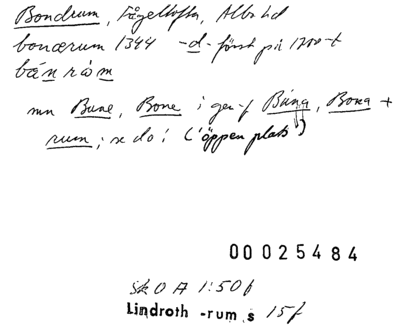 Bondrum, Fågeltofta, Albo hd
bonærum 1344 -d- först på 1700-t
bån røm
mn Bune, Bone i gen-f Buna, Bona +
rum; se do! ('öppen plats')
00025484
Sk O A 1:50f
Lindroth -rum s 15f